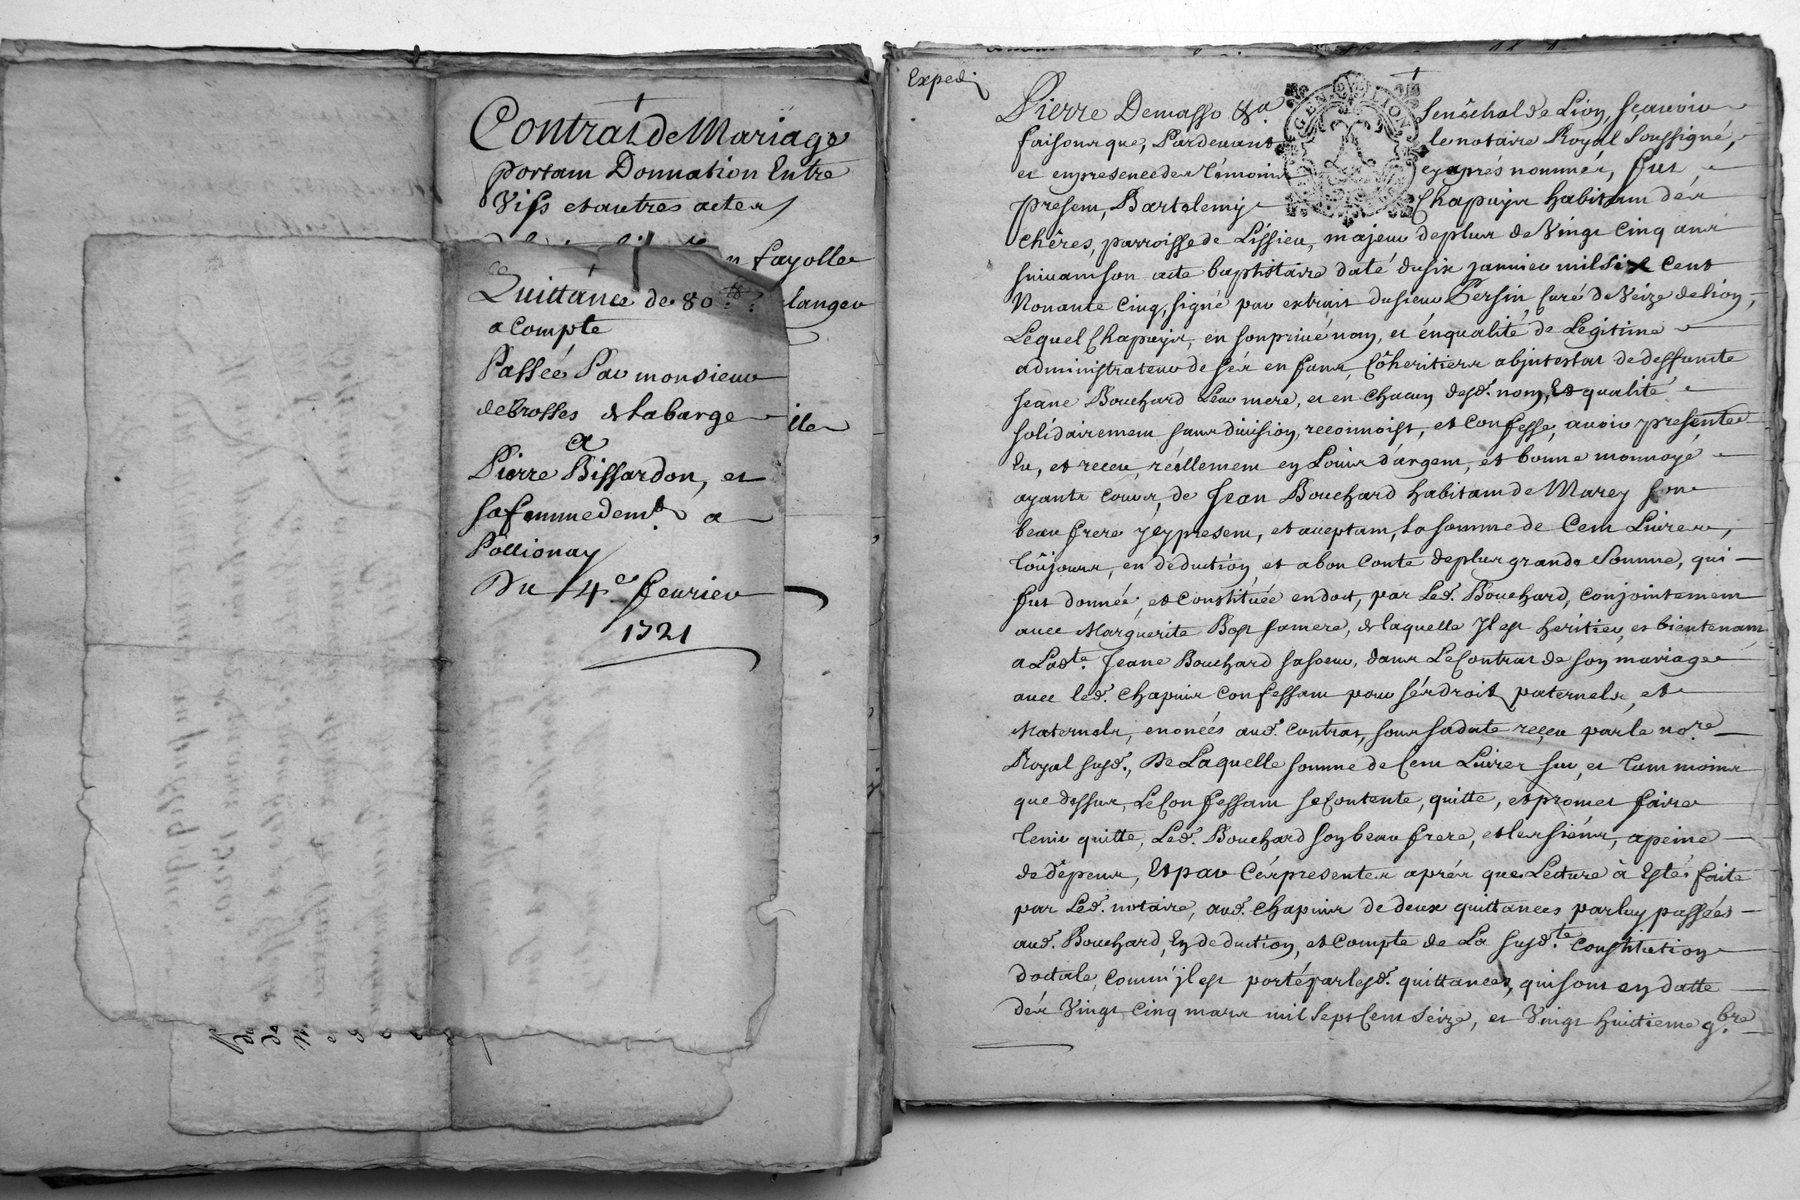 Contrat de Mariage
portant Donnation Entre
Vifs et autres actes
n fayolle
Quittance de 80
langeu
a Compte
Passée Par monsieur
debrosses de Labarge
ille
a
Pierre Bissardon, et
sa femme dem.t a
Pollionay
Du 4.e feurier
1721
Exped.
Pierre Demasso &.a Senêchal de Lion, sçauoir
faisons que, Pardeuant le notaire Royal Soussigné,
et en presence des témoins cy aprés nommés, fut
present, Bartelemy Chapuys habitant dés
Chêres, parroisse de Lissieu, majeur de plus de Vingt Cinq ans
suiuant son acte baptistaire daté du six januier mil six Cent
Nonante Cinq, signé par extrait du sieur Persin, Curé de Veize de lion,
Lequel Chapuys, en son priué nom, et én qualité de Legitime
administrateur de sés enfans, Côheritiers abintestat de deffunte
Jeane Bouchard Leur mere, et en chacun desd. nom, Et qualité
solidairement sans diuision, reconnoist, et Confesse, auoir presente
Eu, et receu réellement en Louis d'argent, et bonne monnoye
ayants cours, de Jean Bouchard habitant de Marcy son
beau frere jcy present, et acceptant, La somme de Cent Liures,
toûjours, en déduction et a bon Conte de plus grande Somme, qui
fut donnée, et Constituée en dot, par Led. Bouchard, conjointement
auec Marguerite Bost sa mere, de laquelle Il est heritier, et bientenant
a Lad.te Jeane Bouchard sa soeur, dans Le Contrat de son mariage
auec led. Chapuis Confessant pour sés droits paternels, et
Maternels, enoncés aud. Contrat, sous sa date reçeu par le no.re
Royal susd., De Laquelle somme de Cent Liures sur, et tant moins
que dessus, Le Confessant se Contente, quitte, et promet faire
tenir quitte, Led. Bouchard son beau frere, et les siéns, a peine
de dêpens, Et par Cés presentes aprés que Lecture à Esté faite
par Led. notaire, aud. Chapuis de deux quittances par luy passées
aud. Bouchard, En deduction, et Compte de La susd.te Constitution
dotale, comm'jl est porté par lesd. quittances, qui sont en datte
dés Vingt Cinq mars mil sept Cent seize, et Vingt huitieme 9.bre